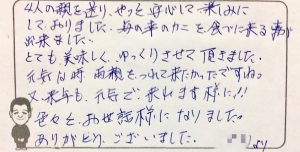 4人の親を送り、やっと安心して楽しみに
しておりました。海の幸のカニを食べに来る事が
出来ました。
とても美味しく、ゆっくりさせて頂きました。
元気な時、両親をつれて来たかったですね。
又来年も、元気で、来れます様に!!
色々と、お世話様になりました。
ありがとうございました。
より